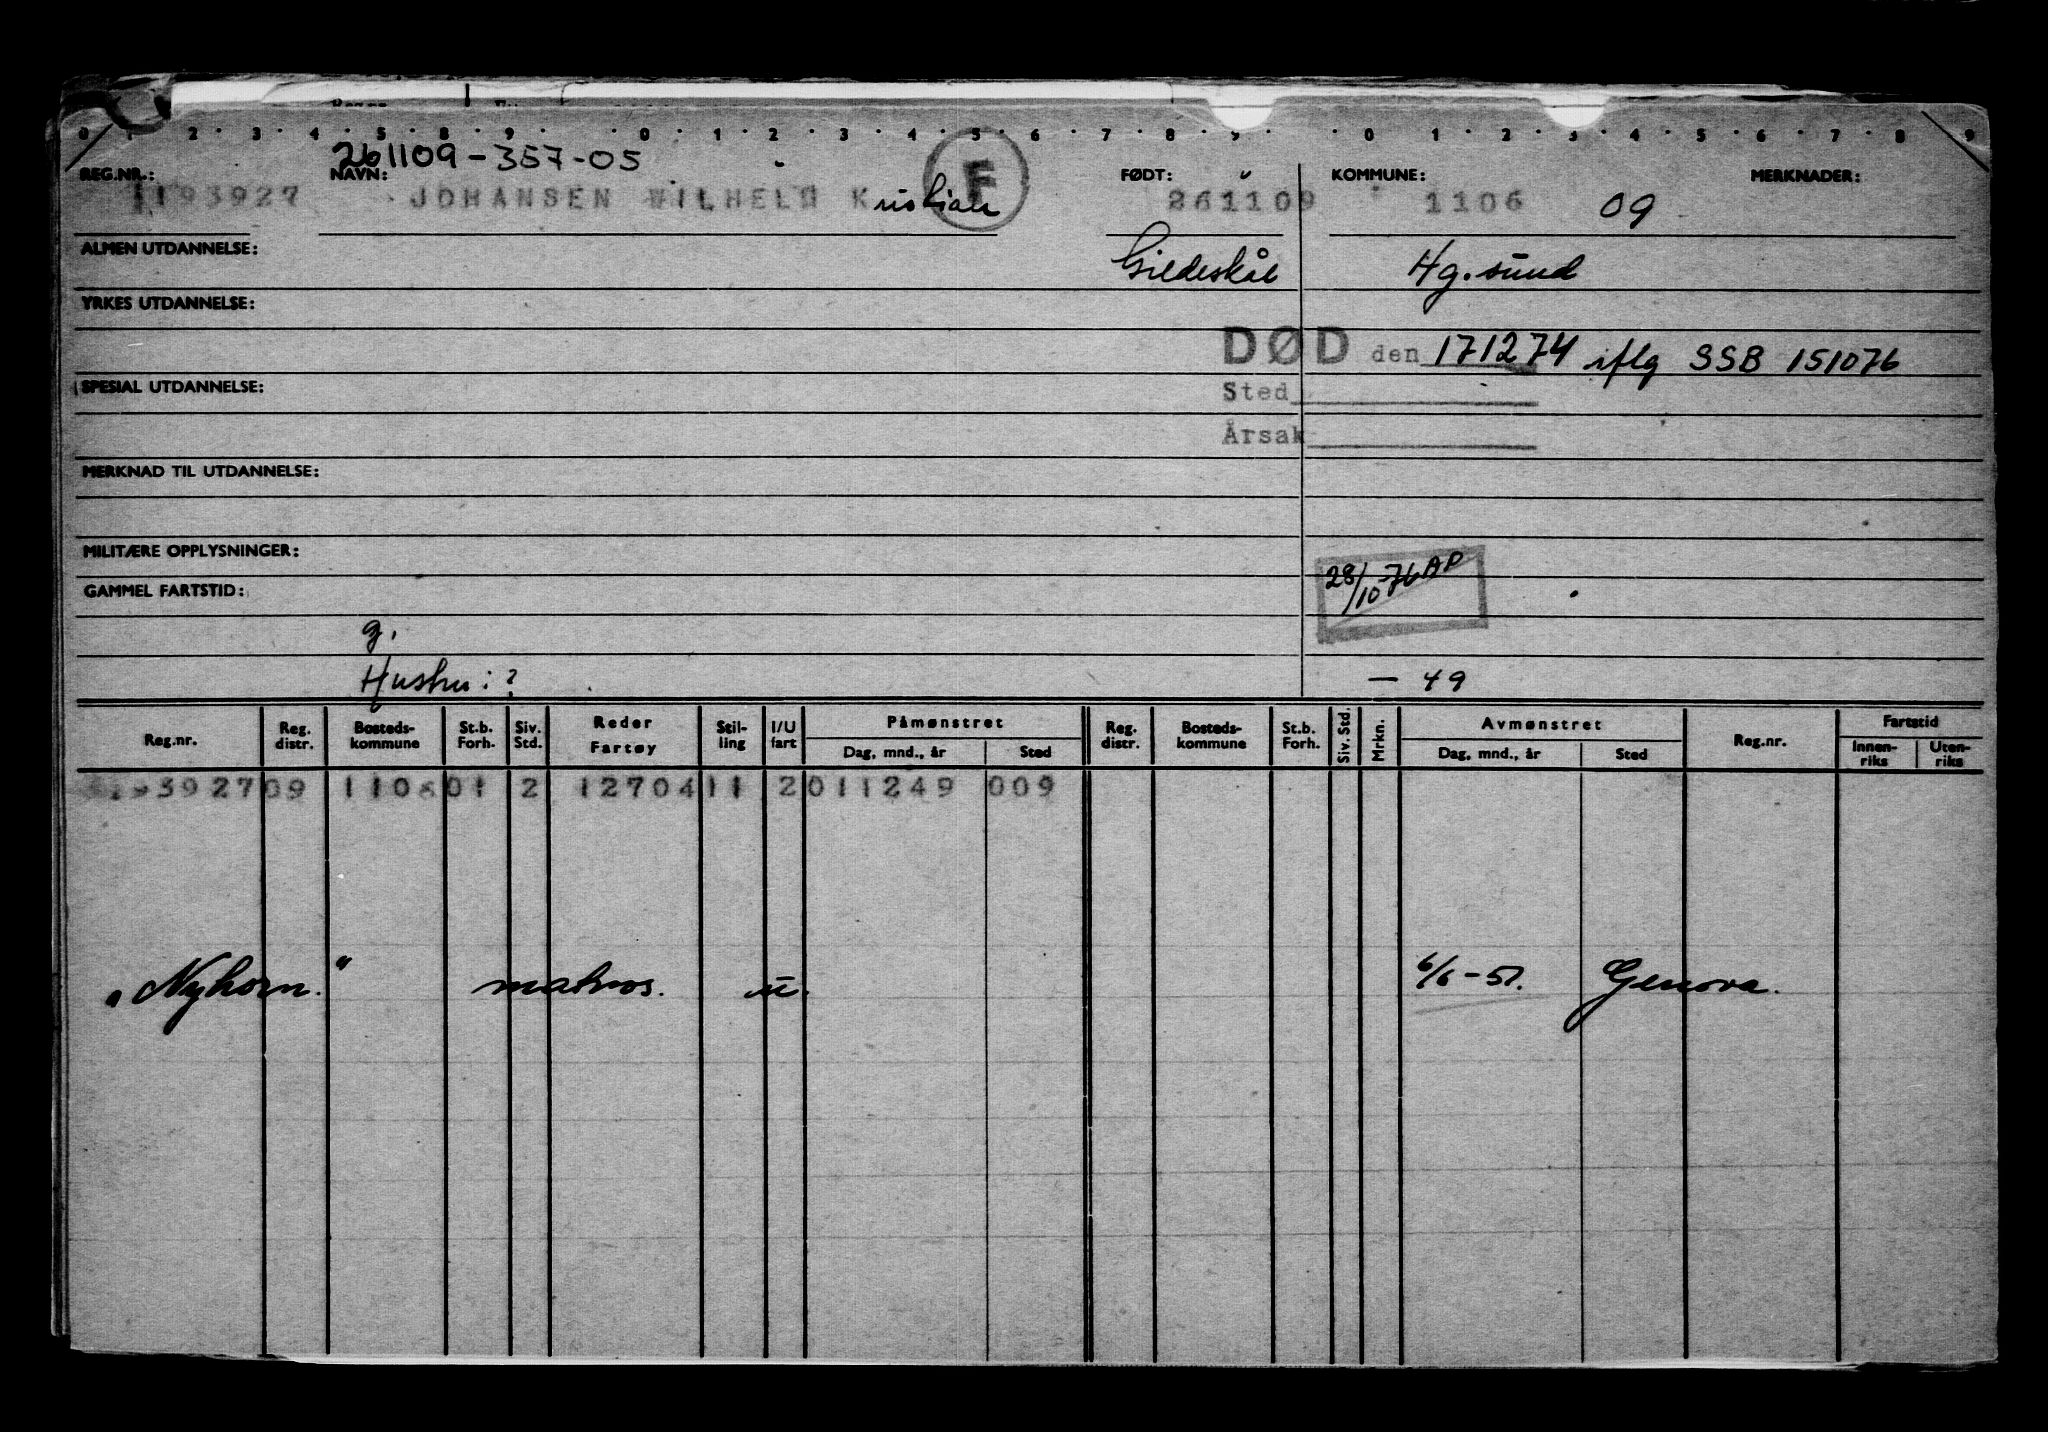 0 1 2 3 4 5 8 9 0 1 2 3 4 5 6 7 8 9 0 1 2 3 4 5 6 7 8 9
261109-357-05
F
REG.NR.: NAVN: FØDT: KOMMUNE: MERKNADER:
1193927 JOHANSEN WILHELM Kristian 261109 1106 09
ALMEN UTDANNELSE: Gildeskål Hg.sund
YRKES UTDANNELSE:
DØD den 171274 iflg SSB 151076
SPESIAL UTDANNELSE: Sted
Årsak
MERKNAD TIL UTDANNELSE:
MILITÆRE OPPLYSNINGER:
28/10-76 AP
GAMMEL FARTSTID:
g.
Hustru: ? — 49
Reg.nr. Reg. distr. Bosteds-kommune St.b. Forh. Siv. Std. Reder Fartøy Stil-ling I/U fart Påmønstret Dag, mnd., år Sted Reg. distr. Bosteds-kommune St.b. Forh. Siv. Std. Mrkn. Avmønstret Dag, mnd., år Sted Reg.nr. Fartstid Innen-riks Uten-riks
1193927 09 1106 01 2 12704 11 2 011249 009
"Nyhorn." matros. u. 6/6-51. Genova.